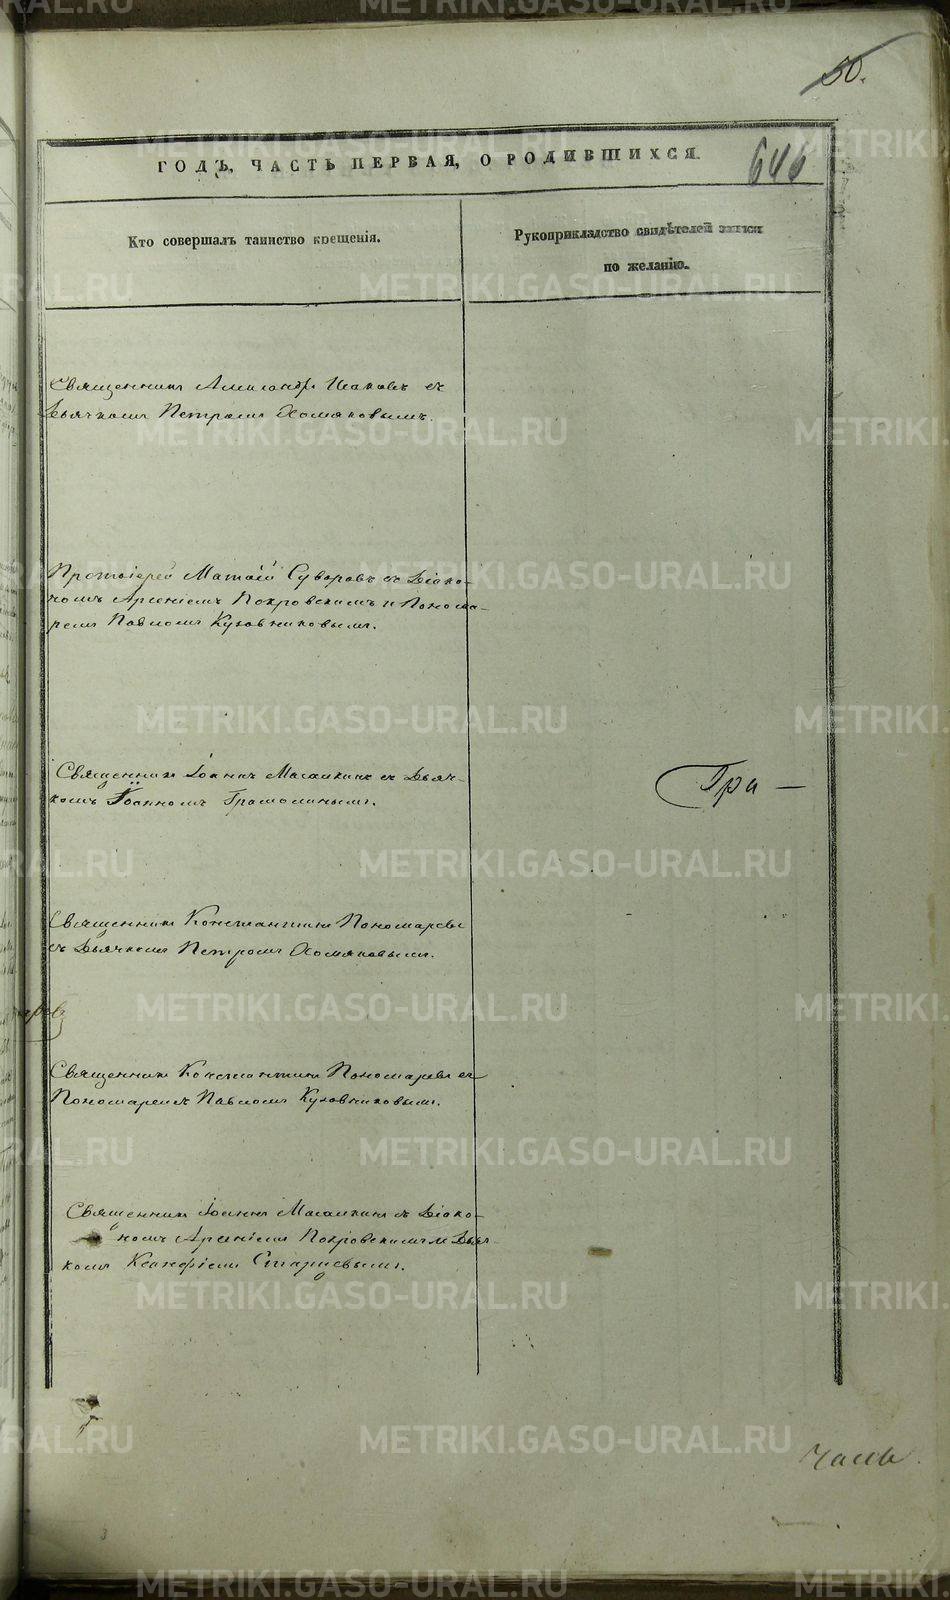 50.
ГОДЪ, ЧАСТЬ ПЕРВАЯ, О РОДИВШИХСЯ.
646
Кто совершалъ таинство крещенія.
Рукоприкладство свидѣтелей записи
по желанію.
Священникъ Александръ съ
Дьячкомъ Петромъ Хомяковымъ.
Протоіерей Матѳій Суворовъ съ Діако-
номъ Арсеніемъ Покровскимъ и Понома-
ремъ Павломъ Кузовниковымъ.
Священникъ Іоаннъ съ Дьяч-
комъ Іоанномъ
Гра —
Священникъ Константинъ Пономаревъ
съ Дьячкомъ Петромъ Хомяковымъ.
Священникъ Константинъ Пономаревъ съ
Пономаремъ Павломъ Кузовниковымъ.
Священникъ Іоаннъ съ Діако-
номъ Арсеніемъ Покровскимъ и Дьяч-
комъ Старцевымъ.
METRIKI.GASO-URAL.RU